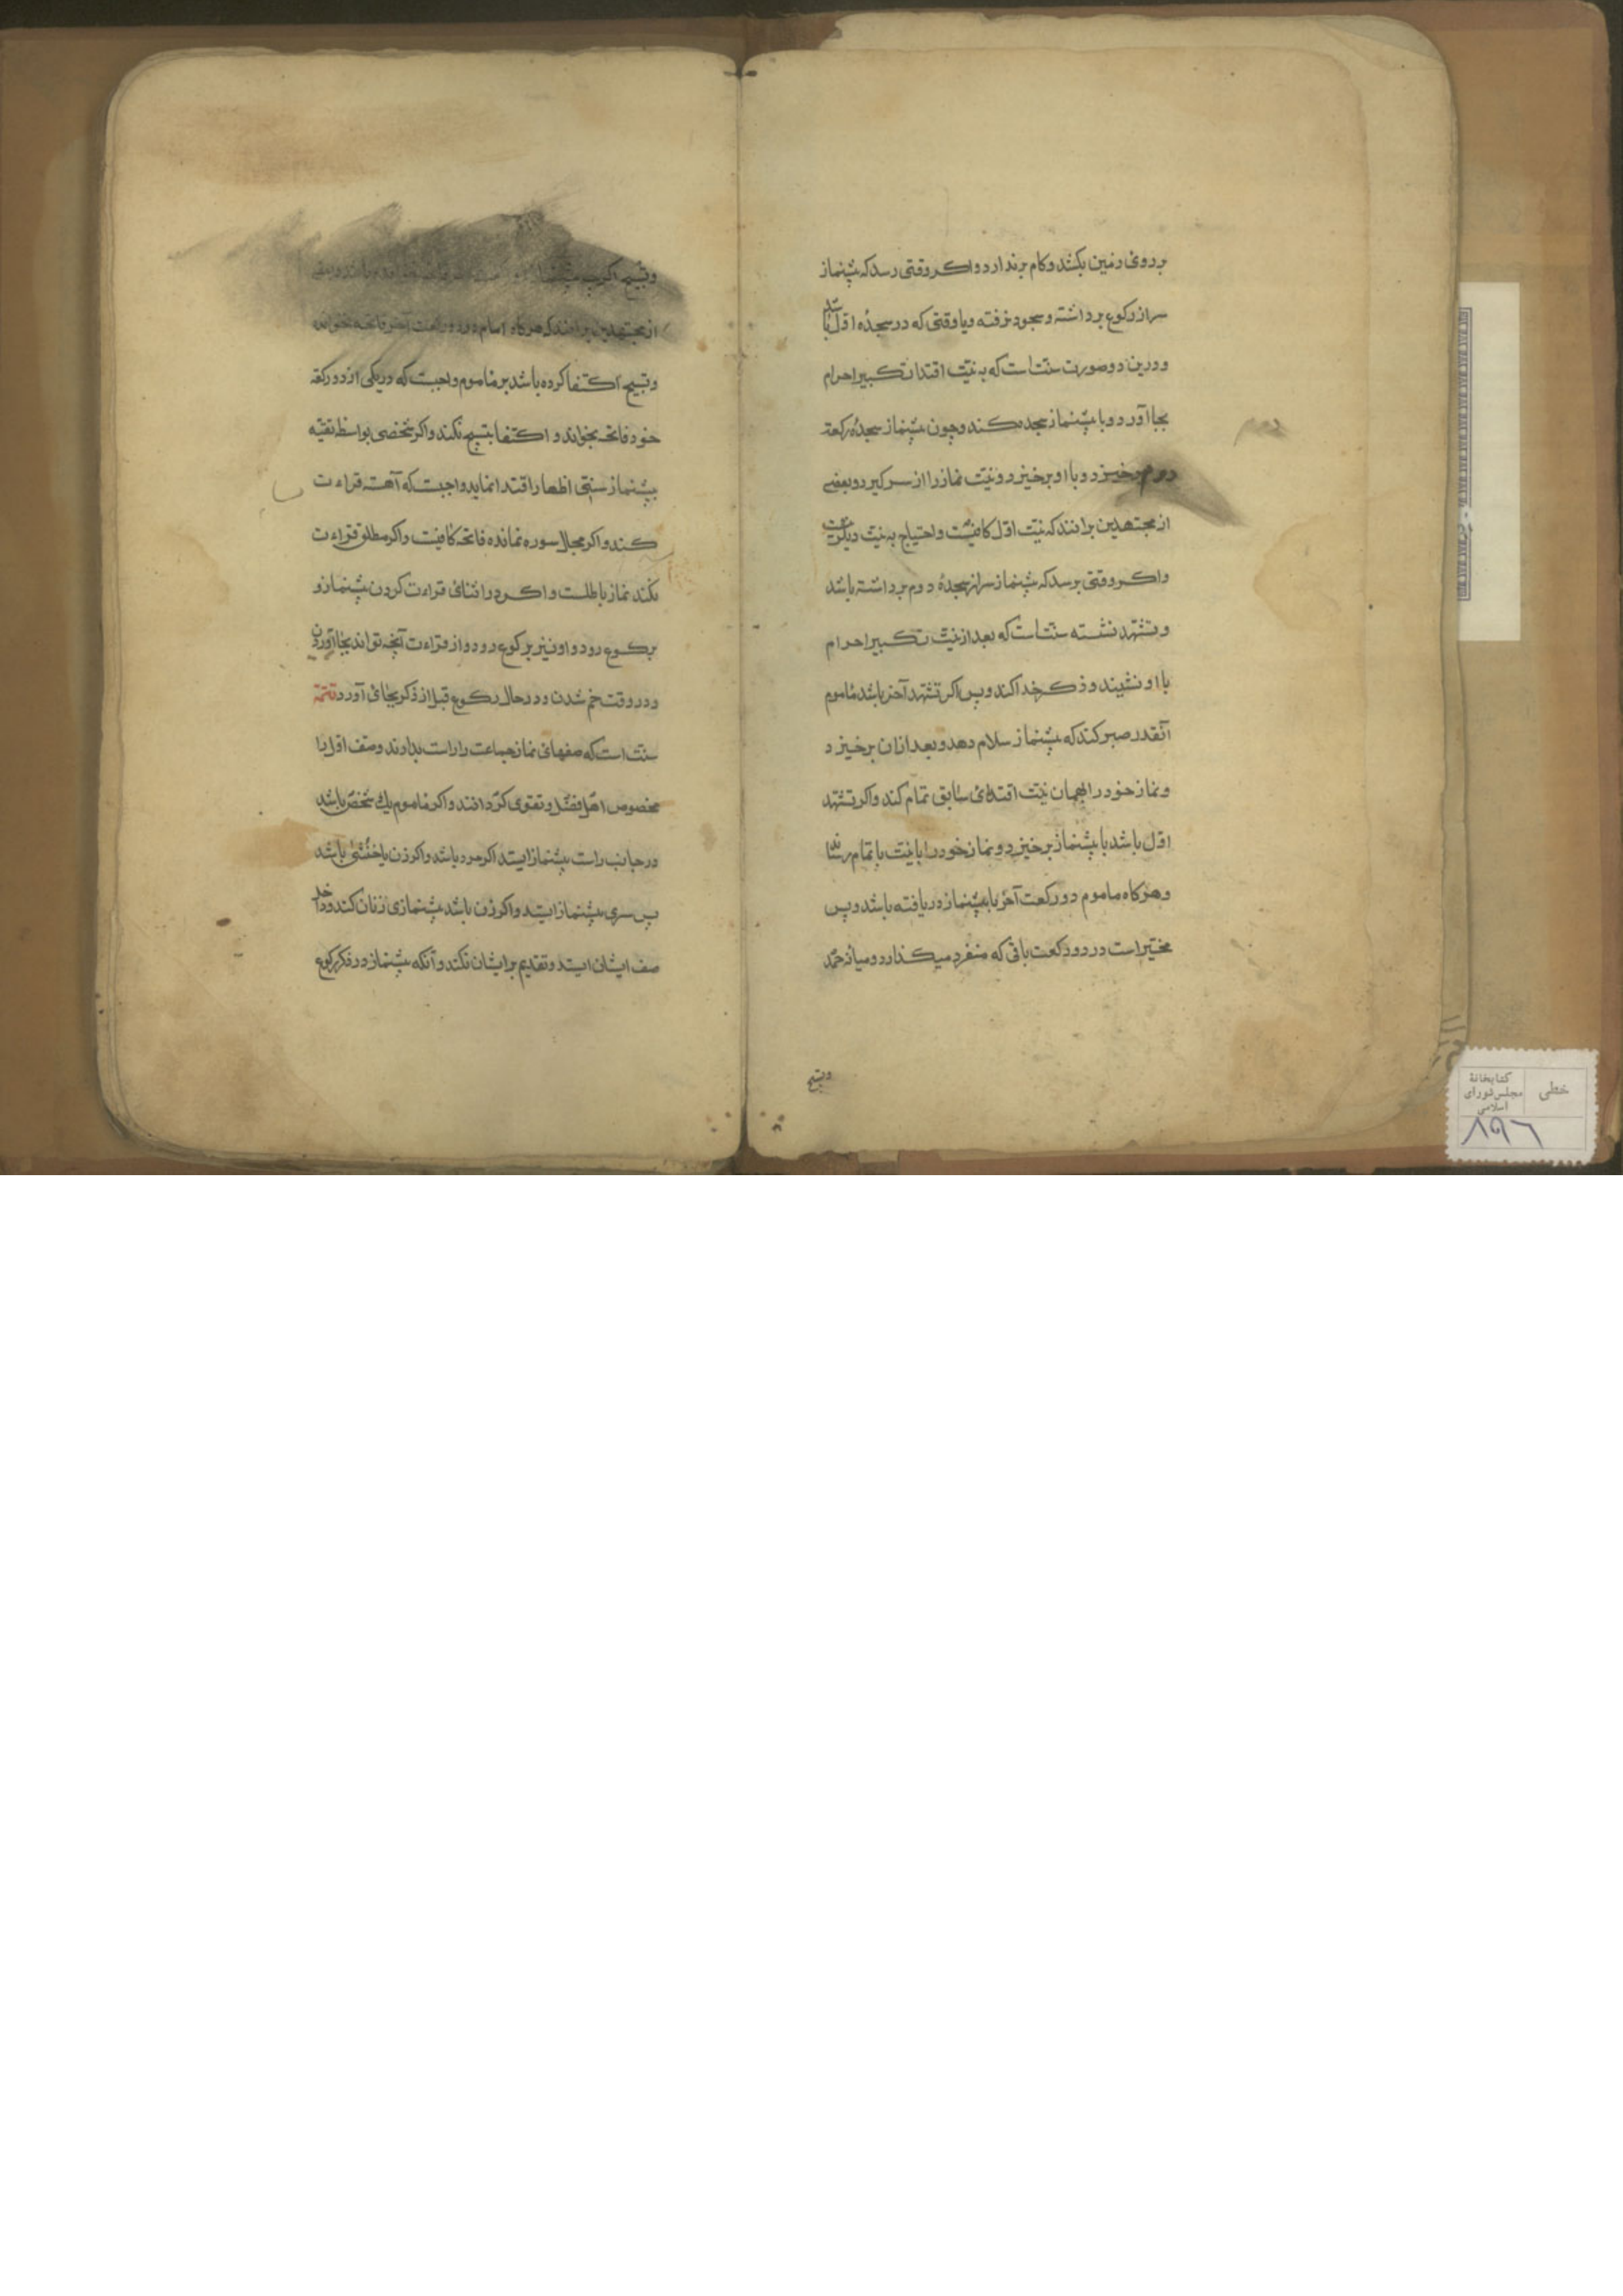 بر روی زمین بکشد و کام برندارد و اکر وقتی رسد که پیشنماز
سر از رکوع برداشته و بسجود نرفته و یا وقتی که در سجدهٔ اول باشد
و درین دو صورت سنت است که به نیّت اقتدا تکبیر احرام
بجا آورد و با پیشنماز سجده کند و چون پیشنماز سجدهٔ رکعة
دوم برخیزد و با او برخیزد و نیّت نماز را از سر کیرد و بعضی
از مجتهدین برانند که نیّت اول کافیست و احتیاج به نیّت دیکر نیست
و اکر وقتی برسد که پیشنماز سر از سجدهٔ دوم برداشته باشد
و تشهّد نشسته سنت است که بعد از نیّت تکبیر احرام
با او نشیند و ذکر خدا کند و پس اکر تشهّد آخر باشد ماموم
آنقدر صبر کند که پیشنماز سلام دهد و بعد ازان برخیزد
و نماز خود را بهمان نیّت اقتدای سابق تمام کند و اکر تشهّد
اول باشد با پیشنماز برخیزد و نماز خود را با نیّت باتمام رساند
و هرکاه ماموم دو رکعت آخر با پیشنماز دریافته باشد و پس
مخیّر است در دو رکعت باقی که منفرد میکذارد و میانه حمد
دوم
وتسبیح
وتسبیح اکر
از مجتهدین برانند که هرکاه امام در دو رکعت آخر فاتحه نخوانده
وتسبیح اکتفا کرده باشد بر ماموم واجبست که در یکی از دو رکعة
خود فاتحه بخواند و اکتفا بتسبیح نکند و اکر شخصی بواسطهٔ تقیّه
پیشنماز سنّی اظهار اقتدا نماید واجبست که آهسته قراءت
کند و اکر مجال سوره نمانده فاتحه کافیست و اکر مطلق قراءت
نکند نماز باطلست و اکر در اثنای قراءت کردن پیشنماز و
برکوع رود و او نیز برکوع رود و از قراءت آنچه تواند بجا آوردن
و در وقت خم شدن و در حال رکوع قبل از ذکر بجای آورد تتمّه
سنت است که صفهای نماز جماعت را راست بدارند و صف اول را
مخصوص اهل فضل و تقوی کردانند و اکر ماموم یک شخص باشد
در جانب راست پیشنماز ایستد اکر مرد باشد و اکر زن یا خنثی باشد
پس سری پیشنماز ایستد و اکر زن باشد پیشنمازی زنان کند و داخل
صف ایشان ایستد و تقدیم بر ایشان نکند و آنکه پیشنماز در فکر رکوع
خطی
کتابخانهٔ
مجلس شورای
اسلامی
۸۹۶